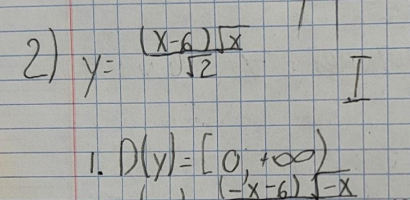 2) y = (x-6)√x / √2
I
1. D(y) = [0, +∞)
(-x-6) √-x